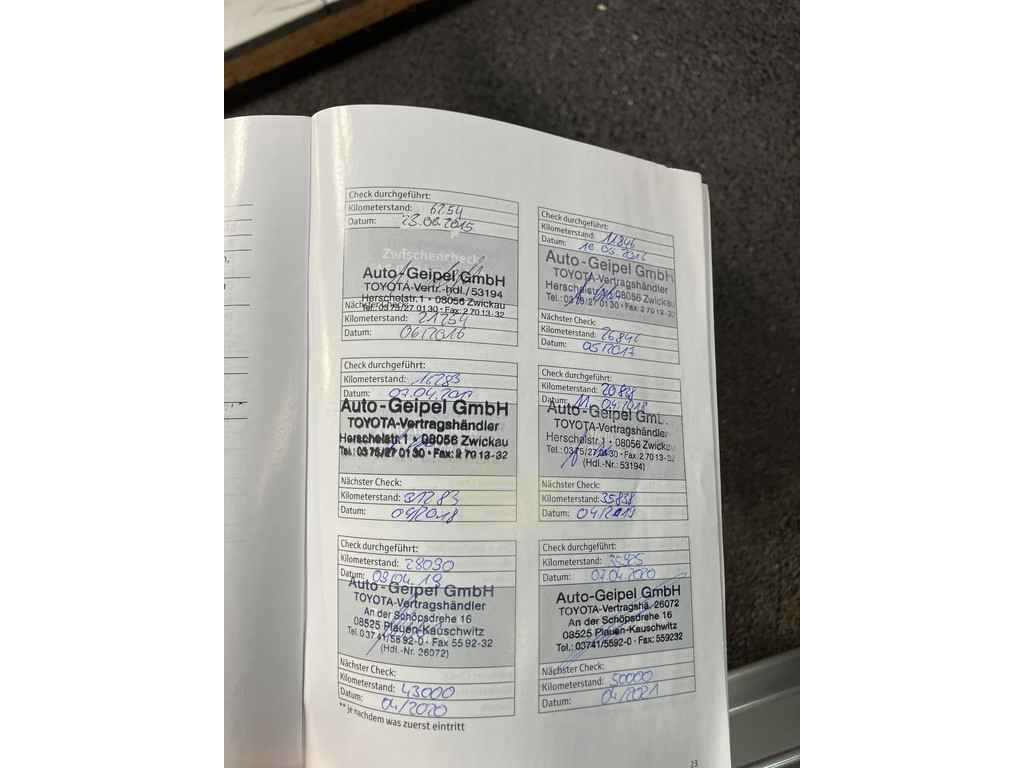 Check durchgeführt:
Kilometerstand: 6254
Datum: 23.06.2015
Zwischencheck
Auto-Geipel GmbH
TOYOTA-Vertr.-hdl./53194
Herschelstr.1 • 08056 Zwickau
Tel.: 0375/27 01 30 • Fax: 2 70 13-32
Nächster Check:
Kilometerstand: 21254
Datum: 06/2016
Check durchgeführt:
Kilometerstand: 11846
Datum: 10.05.2016
Auto-Geipel GmbH
TOYOTA-Vertragshändler
Herschelstr. 08056 Zwickau
Tel.: 0375/27 01 30 • Fax: 2 70 13-32
Nächster Check:
Kilometerstand: 26846
Datum: 05/2017
Check durchgeführt:
Kilometerstand: 16283
Datum: 07.04.201
Auto-Geipel GmbH
TOYOTA-Vertragshändler
Herschelstr. 1 • 08056 Zwickau
Tel.: 0375/27 01 30 • Fax: 2 70 13-32
Nächster Check:
Kilometerstand: 31283
Datum: 04/2018
Check durchgeführt:
Kilometerstand: 20838
Datum: 11.04.2018
Auto-Geipel GmbH
TOYOTA-Vertragshändler
Herschelstr. 1 • 08056 Zwickau
Tel.: 0375/27 01 30 • Fax: 2 70 13-32
(Hdl.-Nr.: 53194)
Nächster Check:
Kilometerstand: 35838
Datum: 04/2019
Check durchgeführt:
Kilometerstand: 28030
Datum: 03.04.19
Auto-Geipel GmbH
TOYOTA-Vertragshändler
An der Schöpsdrehe 16
08525 Plauen-Kauschwitz
Tel. 03741/55 92-0 • Fax 55 92-32
(Hdl.-Nr. 26072)
Nächster Check:
Kilometerstand: 43000
Datum: 04/2020
Check durchgeführt:
Kilometerstand: 35425
Datum: 07.04.2020
Auto-Geipel GmbH
TOYOTA-Vertragshä. 26072
An der Schöpsdrehe 16
08525 Plauen-Kauschwitz
Tel.: 03741/5592-0 • Fax: 559232
Nächster Check:
Kilometerstand: 50000
Datum: 04/2021
** je nachdem was zuerst eintritt
23